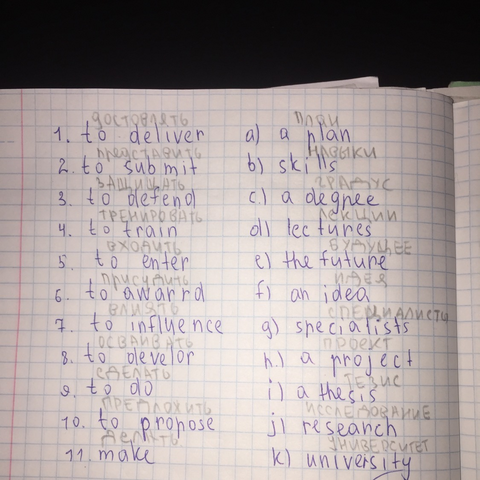 доставлять план
1. to deliver a) a plan
представить навыки
2. to submit b) skills
защищать градус
3. to defend c) a degree
тренировать лекции
4. to train d) lectures
входить будущее
5. to enter e) the future
присудить идея
6. to awarrd f) an idea
влиять специалисты
7. to influence g) specialists
осваивать проект
8. to develor h) a project
сделать тезис
9. to do i) a thesis
предложить исследование
10. to propose j) research
делать университет
11. make k) university